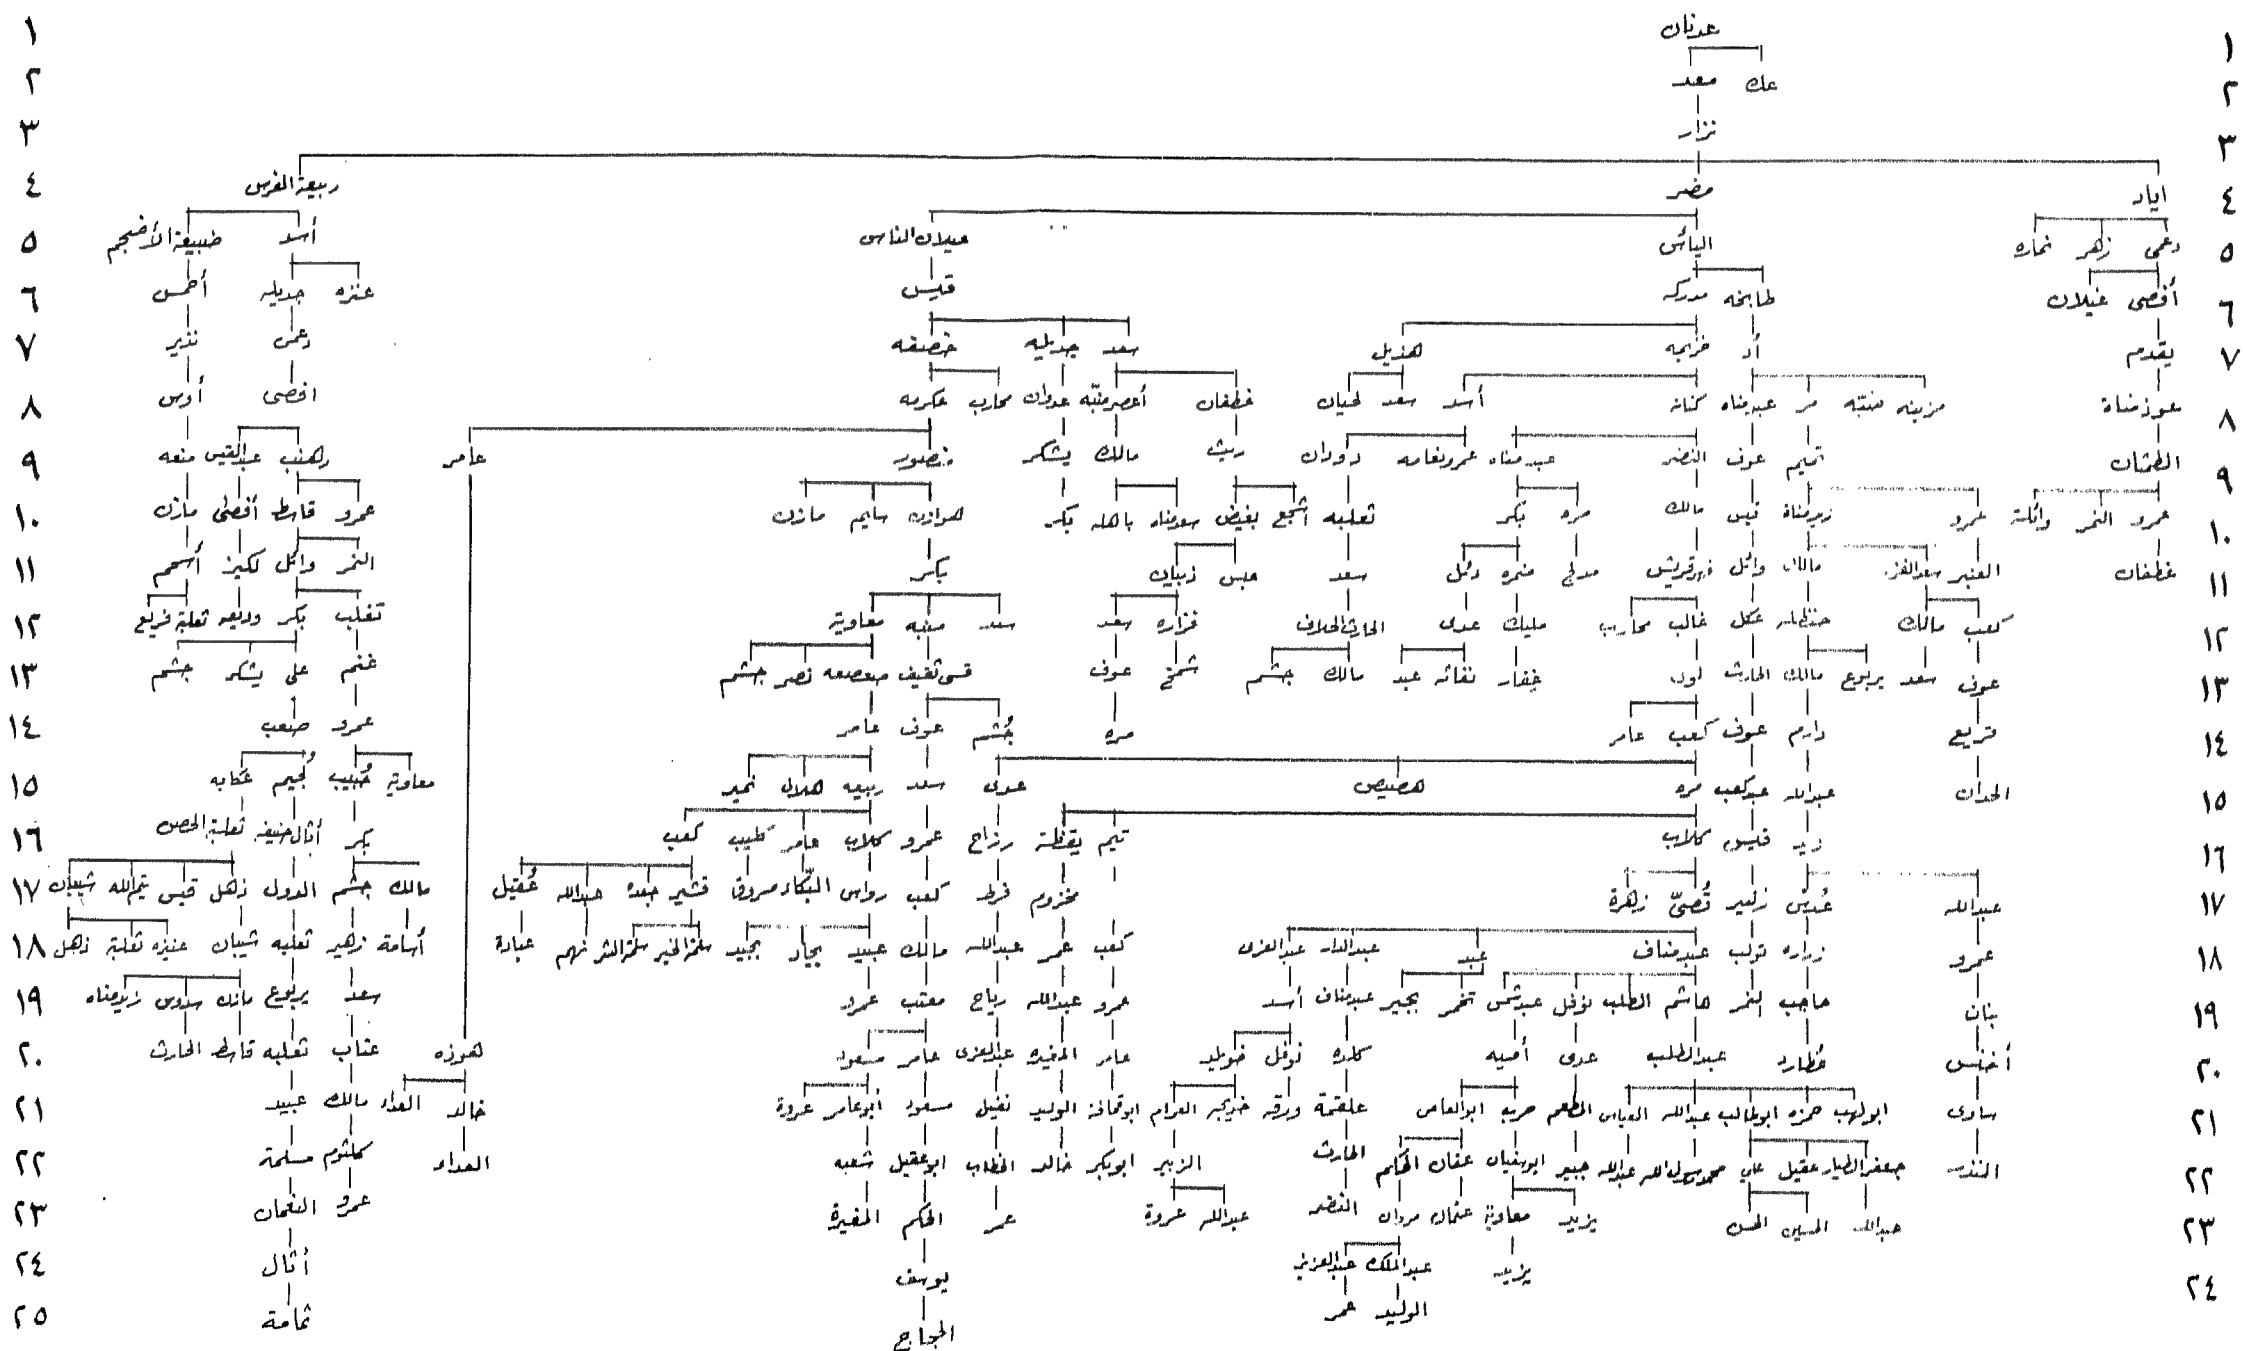 ١ عدنان ١
٢ عك معد ٢
٣ نزار ٣
٤ اياد مضر ربيعة الفرس ٤
٥ دعمى زهر نماره الياس عيلان الناس أسد ضبيعة الأضجم ٥
٦ أفصى غيلان طابخه مدركه قيس عنزه جديله أحمس ٦
٧ يقدم أد خزيمه هذيل سعد جديله خصفه دعمى نذير ٧
٨ عوذ مناة مزينه منبّه مر عبدمناه كنانه أسد سعد لحيان غطفان أعصرمنبّه عدوان محارب عكرمه افصى أوس ٨
٩ الطمثان تميم عوف النضر عبدمناه عمرو نعامه دودان ريث مالك يشكر منصور عامر هنب عبدالقيس منعه ٩
١٠ عمرو النمر واثلة عمرو زيدمناة قيس مالك مره بكر ثعلبه أشجع بغيض سعدمناه باهله بكر هوازن سليم مازن عمرو قاسط أفصى مازن ١٠
١١ غطفان العنبر سعد الفزر مالك وائل فهر قريش مدلج ضمره دئل سعد عبس ذبيان بكر النمر وائل لكيز أسحم ١١
١٢ كعب مالك حنظله عكل غالب محارب مليك عدى الحارث الحلاف فزاره سعد سعد منبه معاوية تغلب بكر وديعه ثعلبة فريع ١٢
١٣ عوف سعد يربوع مالك الحارث لوى غفار نفاثه عبد مالك جشم شمخ عوف قسى ثقيف صعصعه نصر جشم غنم على يشكر جشم ١٣
١٤ قريع دارم عوف كعب عامر مره جُشم عوف عامر عمرو صعب ١٤
١٥ الحدان عبدالله عبدكعب مره هصيص عدى سعد ربيعه هلال نمير معاوية حُبيب لُجيم عكابه ١٥
١٦ زيد قيس كلاب تيم يقظة رزاح عمرو كلاب عامر كليب كعب بكر أثال حنيفه ثعلبة الحصن ١٦
١٧ عبدالله عُدس زهير قُصىّ زهرة مخزوم قرط كعب رواس البّكاء مسروق قشير جعده عبدالله عُقيل مالك جشم الدول ذهل قيس تيم الله شيبان ١٧
١٨ عمرو زراره تولب عبدمناف عبد عبدالدار عبدالعزى كعب عمر عبدالله مالك عبيد بجاد بجيد سلمة الخير سلمة الشر نهم عبادة أسامة زهير ثعلبه شيبان عنزه ثعلبة ذهل ١٨
١٩ بنان حاجب النمر هاشم المطلب نوفل عبدشمس تخمر بجير عبدمناف أسد عمرو عبدالله رياح معتب عمرو سعد يربوع مازن سدوس زيدمناه ١٩
٢٠ أخنس عُطارد عبدالمطلب عدى أميه كلده نوفل خويلد عامر المغيره عبدالعزى عامر مسعود هوزه عتاب ثعلبه قاسط الحارث ٢٠
٢١ ساوى ابولهب حمزه ابوطالب عبدالله العباس المطعم حرب ابوالعاص علقمة ورقه خديجه العوام ابوقحافة الوليد نفيل مسعود أبوعامر عروة خالد العداء مالك عبيد ٢١
٢٢ المنذر جعفرالطيار عقيل علي محمد رسول الله عبدالله جبير ابوسفيان عفان الحكم الحارث الزبير ابوبكر خالد الخطاب ابوعقيل شعبه العداء كلثوم مسلمة ٢٢
٢٣ عبدالله الحسين الحسن يزيد معاوية عثمان مروان النضر عبدالله عروة عمر الحكم المغيرة عمرو النعمان ٢٣
٢٤ يزيد عبدالملك عبدالعزيز يوسف أثال ٢٤
الوليد عمر الحجاج ثمامة ٢٥